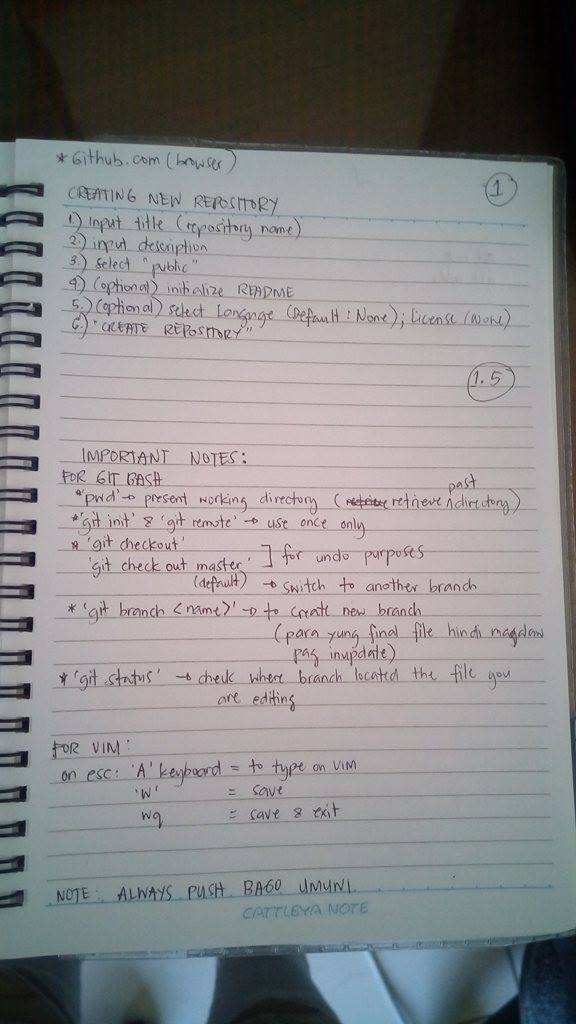 * Github.com (browser)
1
CREATING NEW REPOSITORY
1.) Input title (repository name)
2.) input description
3.) select "public"
4.) (optional) initialize README
5.) (optional) select Language (Default: None); License (None)
6.) "CREATE REPOSITORY"
1.5
IMPORTANT NOTES:
FOR GIT BASH
*'pwd' → present working directory (retrieve ^ past directory)
*'git init' & 'git remote' → use once only
* 'git checkout'
'git check out master' ] for undo purposes
(default) → switch to another branch
* 'git branch <name>' → to create new branch
(para yung final file hindi
pag inupdate)
* 'git status' → check where branch located the file you
are editing
FOR VIM:
on esc: 'A' keyboard = to type on VIM
'W' = save
wq = save & exit
NOTE: ALWAYS PUSH BAGO UMUWI
CATTLEYA NOTE